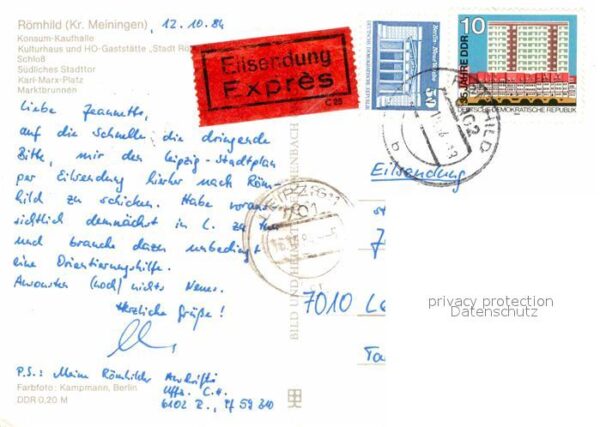 Römhild (Kr. Meiningen)
12.10.84
Konsum-Kaufhalle
Kulturhaus und HO-Gaststätte „Stadt
Schloß
Südliches Stadttor
Karl-Marx-Platz
Marktbrunnen
Eilsendung
Exprès
C 25
DEUTSCHE DEMOKRATISCHE REPUBLIK
10
35 JAHRE DDR
DEUTSCHE DEMOKRATISCHE REPUBLIK
Liebe Jeannette,
auf die Schnelle die dringende
Bitte, mir den Leipzig-Stadtplan
per Eilsendung hierher nach Röm-
hild zu schicken. Habe voraus-
sichtlich demnächst in L. zu tun
und brauche dazu unbedingt
eine Orientierungshilfe.
Ansonsten (noch) nichts Neues.
Herzliche Grüße!
P.S.: Meine Römhilder Anschrift:
Uffz. C. H.
6102 R., PF 59 310
Farbfoto: Kampmann, Berlin
DDR 0,20 M
BILD UND HEIMAT REICHENBACH
LEIPZIG
701
Eilsendung
7010 Le
privacy protection
Datenschutz